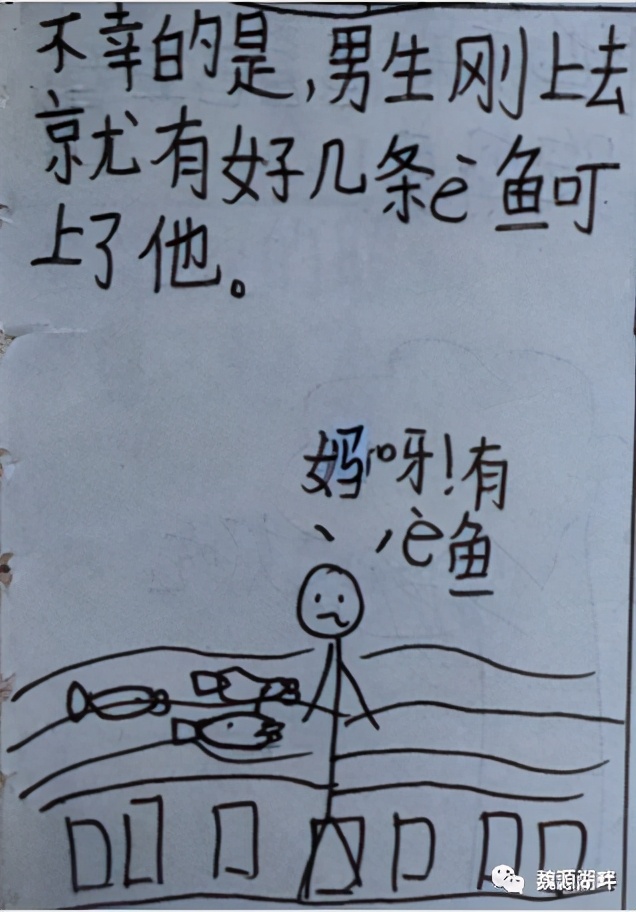 不幸的是,男生刚上去
就有好几条è鱼叮
上了他。
妈呀!有
è鱼
魏源湖畔